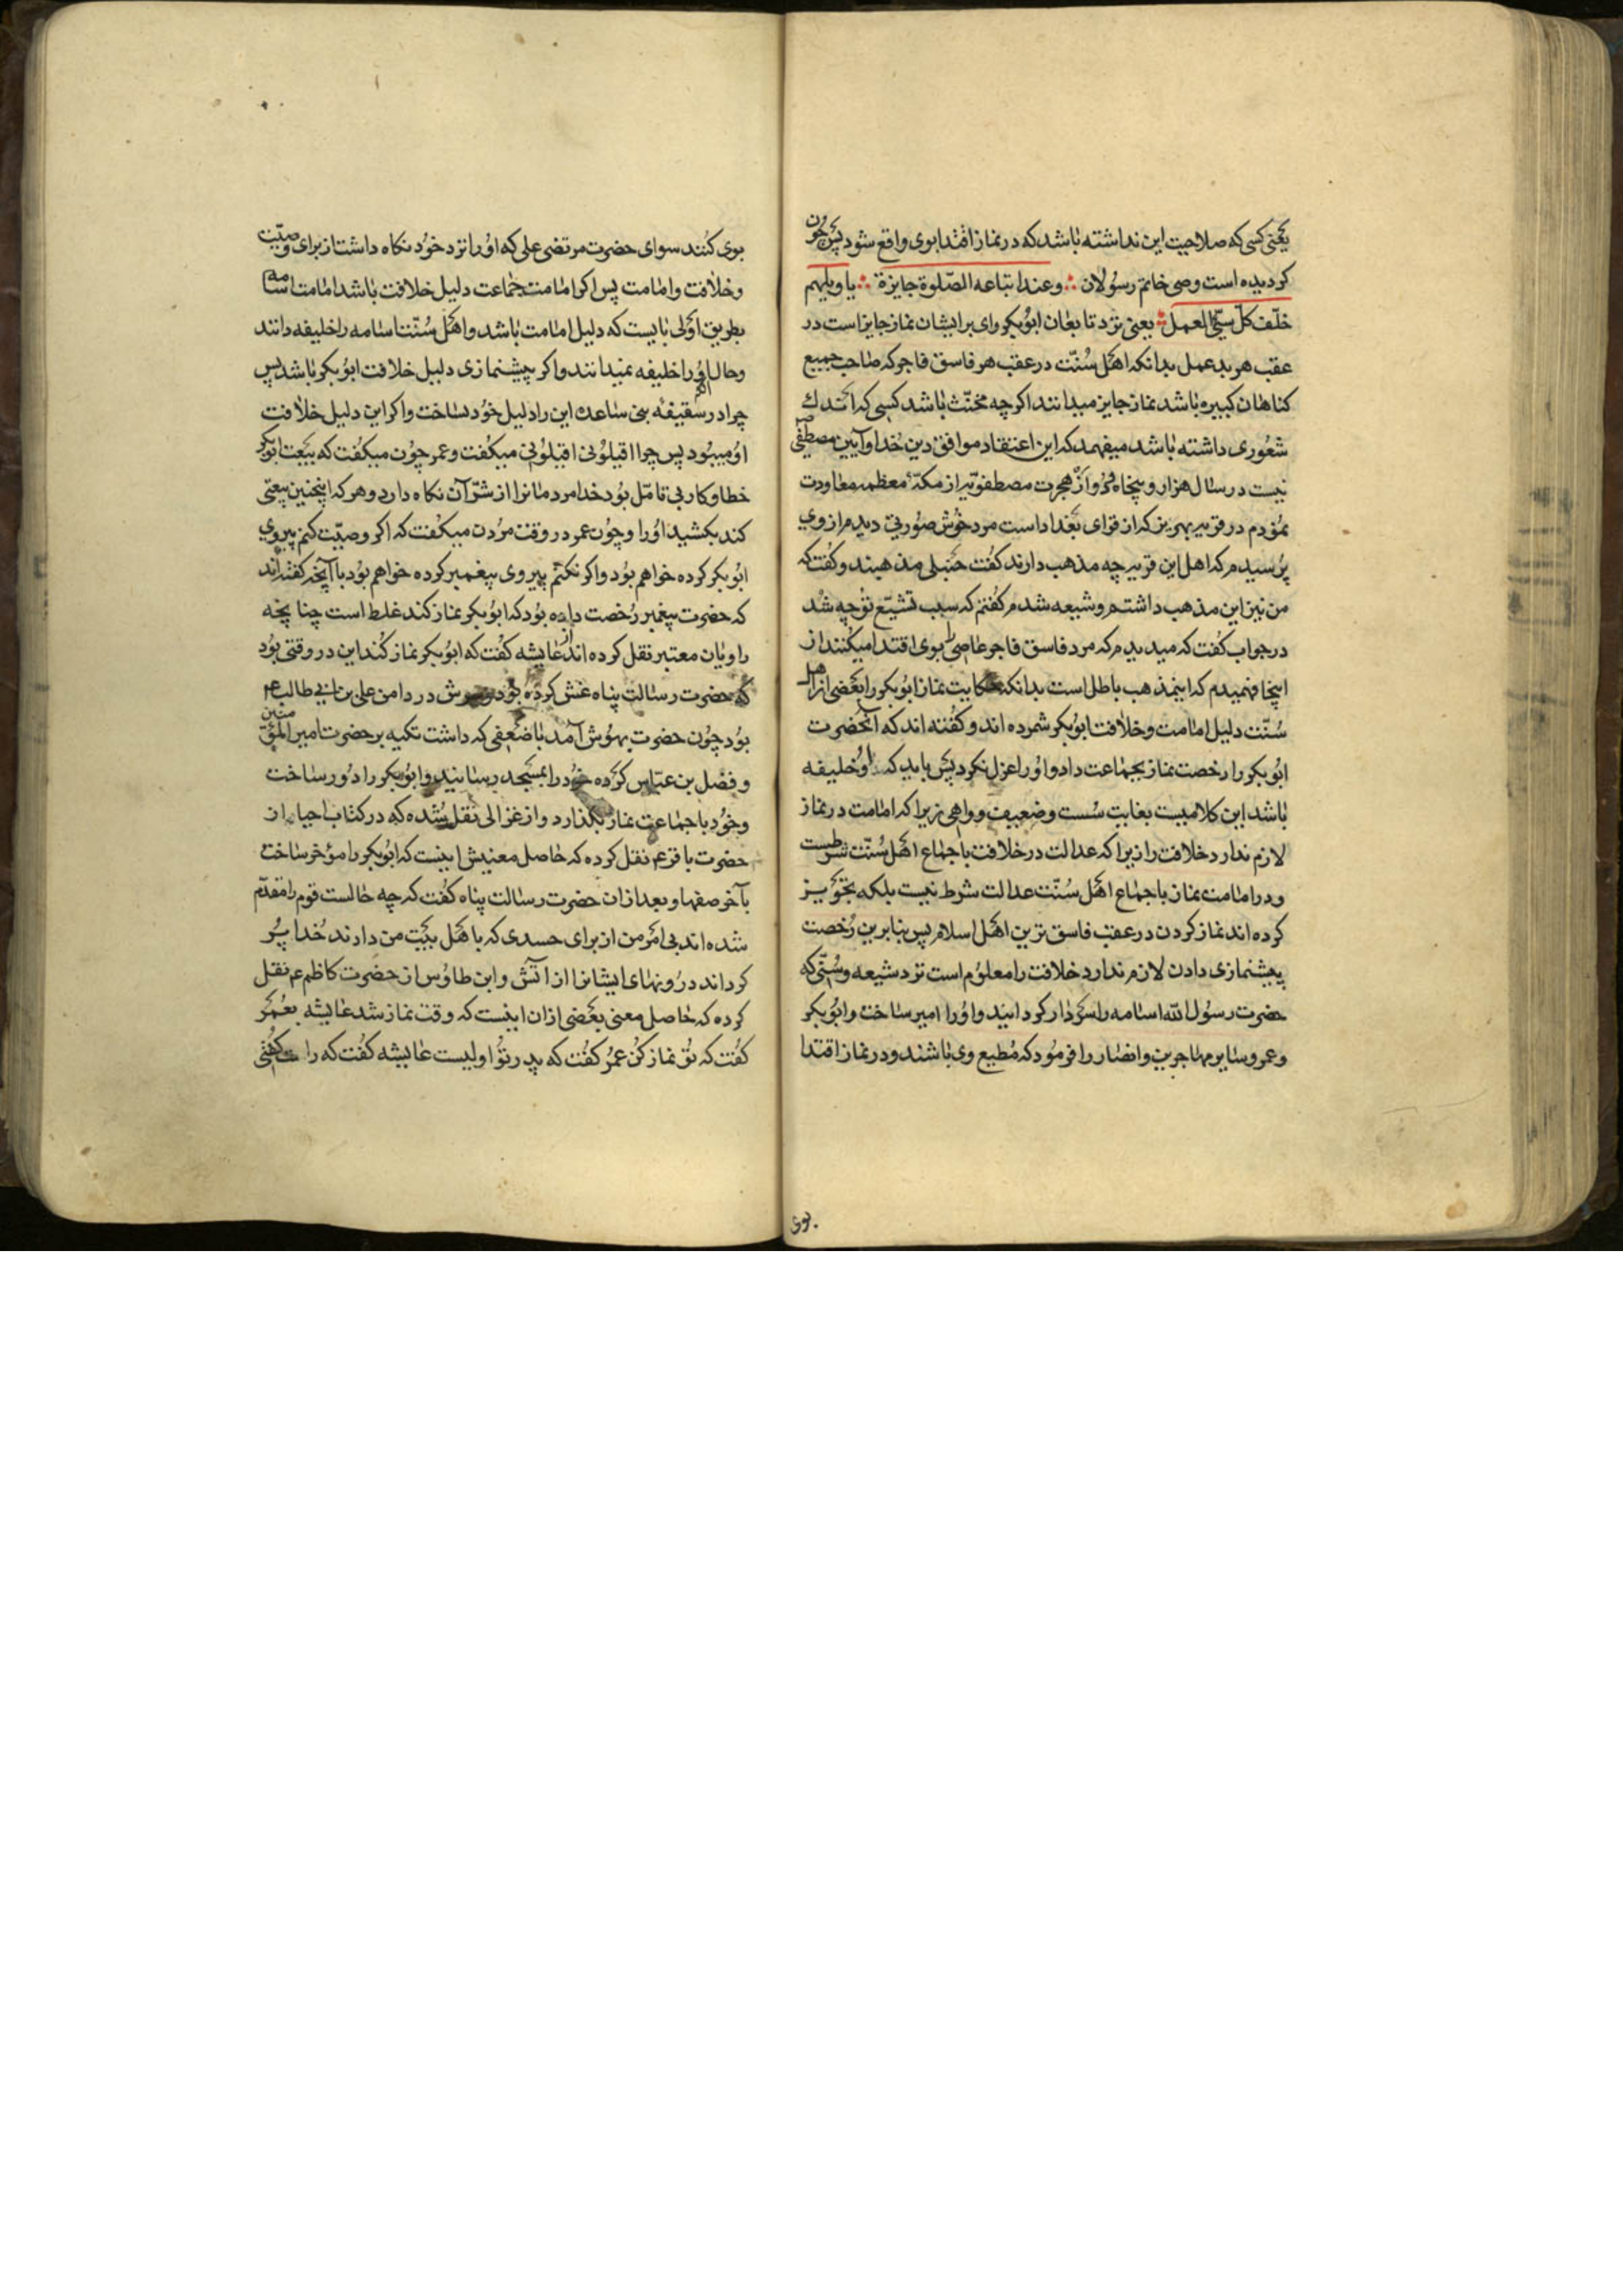 یعنی کسی که صلاحیت این نداشته باشد که در نماز اقتدا بوی واقع شود پس چون
کردیده است وصی خاتم رسولان وعند اتباعه الصلوة جایزة یا ویلهم
خلف کل سیّئ العمل یعنی نزد تابعان ابوبکر وای بر ایشان نماز جایز است در
عقب هر بد عمل بدانکه اهل سُنّت در عقب هر فاسق فاجر که صاحب جمیع
کناهان کبیره باشد نماز جایز میدانند اکرچه مخنّث باشد کسی که اندك
شعوری داشته باشد میفهمد که این اعتقاد موافق دین خدا و آیین مصطفی
نیست در سال هزار و پنجاه از هجرت مصطفویّه از مکّهٔ معظمه معاودت
نمودم در قریه که از قرای بغداد است مرد خوش صورتی دیدم از وی
پرسیدم که اهل این قریه چه مذهب دارند کفت حنبلی مذهبند و کفت که
من نیز این مذهب داشتم و شیعه شدم کفتم که سبب تشیّع تو چه شد
در جواب کفت که میدیدم که مرد فاسق فاجر عاصی را بوی اقتدا میکنند از
اینجا فهمیدم که اینمذهب باطل است بدانکه حکایت نماز ابوبکر را بعضی از اهل
سُنّت دلیل امامت و خلافت ابوبکر شمرده اند و کفته اند که آنحضرت
ابوبکر را رخصت نماز بجماعت داد و او را عزل نکرد پس باید که او خلیفه
باشد این کلامیست بغایت سُست وضعیف و واهی زیرا که امامت در نماز
لازم ندارد خلافت را زیرا که عدالت در خلافت باجماع اهل سُنّت شرطست
و در امامت نماز باجماع اهل سُنّت عدالت شرط نیست بلکه تجویز
کرده اند نماز کردن در عقب فاسق ترین اهل اسلام پس بنابرین رُخصت
پیشنمازی دادن لازم ندارد خلافت را معلوم است نزد شیعه و سُنّی که
حضرت رسول الله اسامه را سردار کردانید و او را امیر ساخت و ابوبکر
و عمر و سایر مهاجرین و انصار را فرمود که مُطیع وی باشند و در نماز اقتدا
بوی
بوی کنند سوای حضرت مرتضی علی که او را نزد خود نکاه داشت از برای وصیّت
و خلافت و امامت پس اکر امامت جماعت دلیل خلافت باشد امامت اسامه
بطریق اَولی بایست که دلیل امامت باشد و اهل سُنّت اسامه را خلیفه دانند
و حال آنکه او را خلیفه نمیدانند و اکر پیشنمازی دلیل خلافت ابوبکر باشد پس
چرا در سقیفهٔ بنی ساعده این را دلیل خود نساخت و اکر این دلیل خلافت
او میبود پس چرا اقیلونی اقیلونی میکفت و عمر چون میکفت که بیعت ابوبکر
خطا و کار بی تامّل بود خدا مردمانرا از شرّ آن نکاه دارد و هر که اینچنین بیعتی
کند بکشید او را و چون عمر در وقت مردن میکفت که اکر وصیّت کنم پیروی
ابوبکر کرده خواهم بود و اکر نکنم پیروی پیغمبر کرده خواهم بود با آنچه کفته اند
که حضرت پیغمبر رُخصت داده بود که ابوبکر نماز کند غلط است چنانچه
راویان معتبر نقل کرده اند از عایشه کفت که ابوبکر نماز کند این در وقتی بود
که حضرت رسالت پناه غش کرده بود و سرش در دامن علی بن ابی طالب ع م
بود چون حضرت بهوش آمد با ضعفی که داشت تکیه بر حضرت امیر المؤمنین
و فضل بن عبّاس کرده خود را بمسجد رسانید و ابوبکر را دور ساخت
و خود با جماعت نماز بکذارد و از غزالی نقل شده که در کتاب احیا از
حضرت باقر ع م نقل کرده که حاصل معنیش اینست که ابوبکر را مؤخر ساخت
بآخر صفها و بعد از ان حضرت رسالت پناه کفت که چه حالست قوم را مقدّم
شده اند بی امر من از برای حسدی که باهل بیت من دارند خدا پُر
کرداند درونهای ایشانرا از آتش و ابن طاوس از حضرت کاظم ع م نقل
کرده که حاصل معنی بعضی از ان اینست که وقت نماز شد عایشه بعُمر
کفت که تو نماز کن عمر کفت که پدر تو اولیست عایشه کفت که راست کفتی